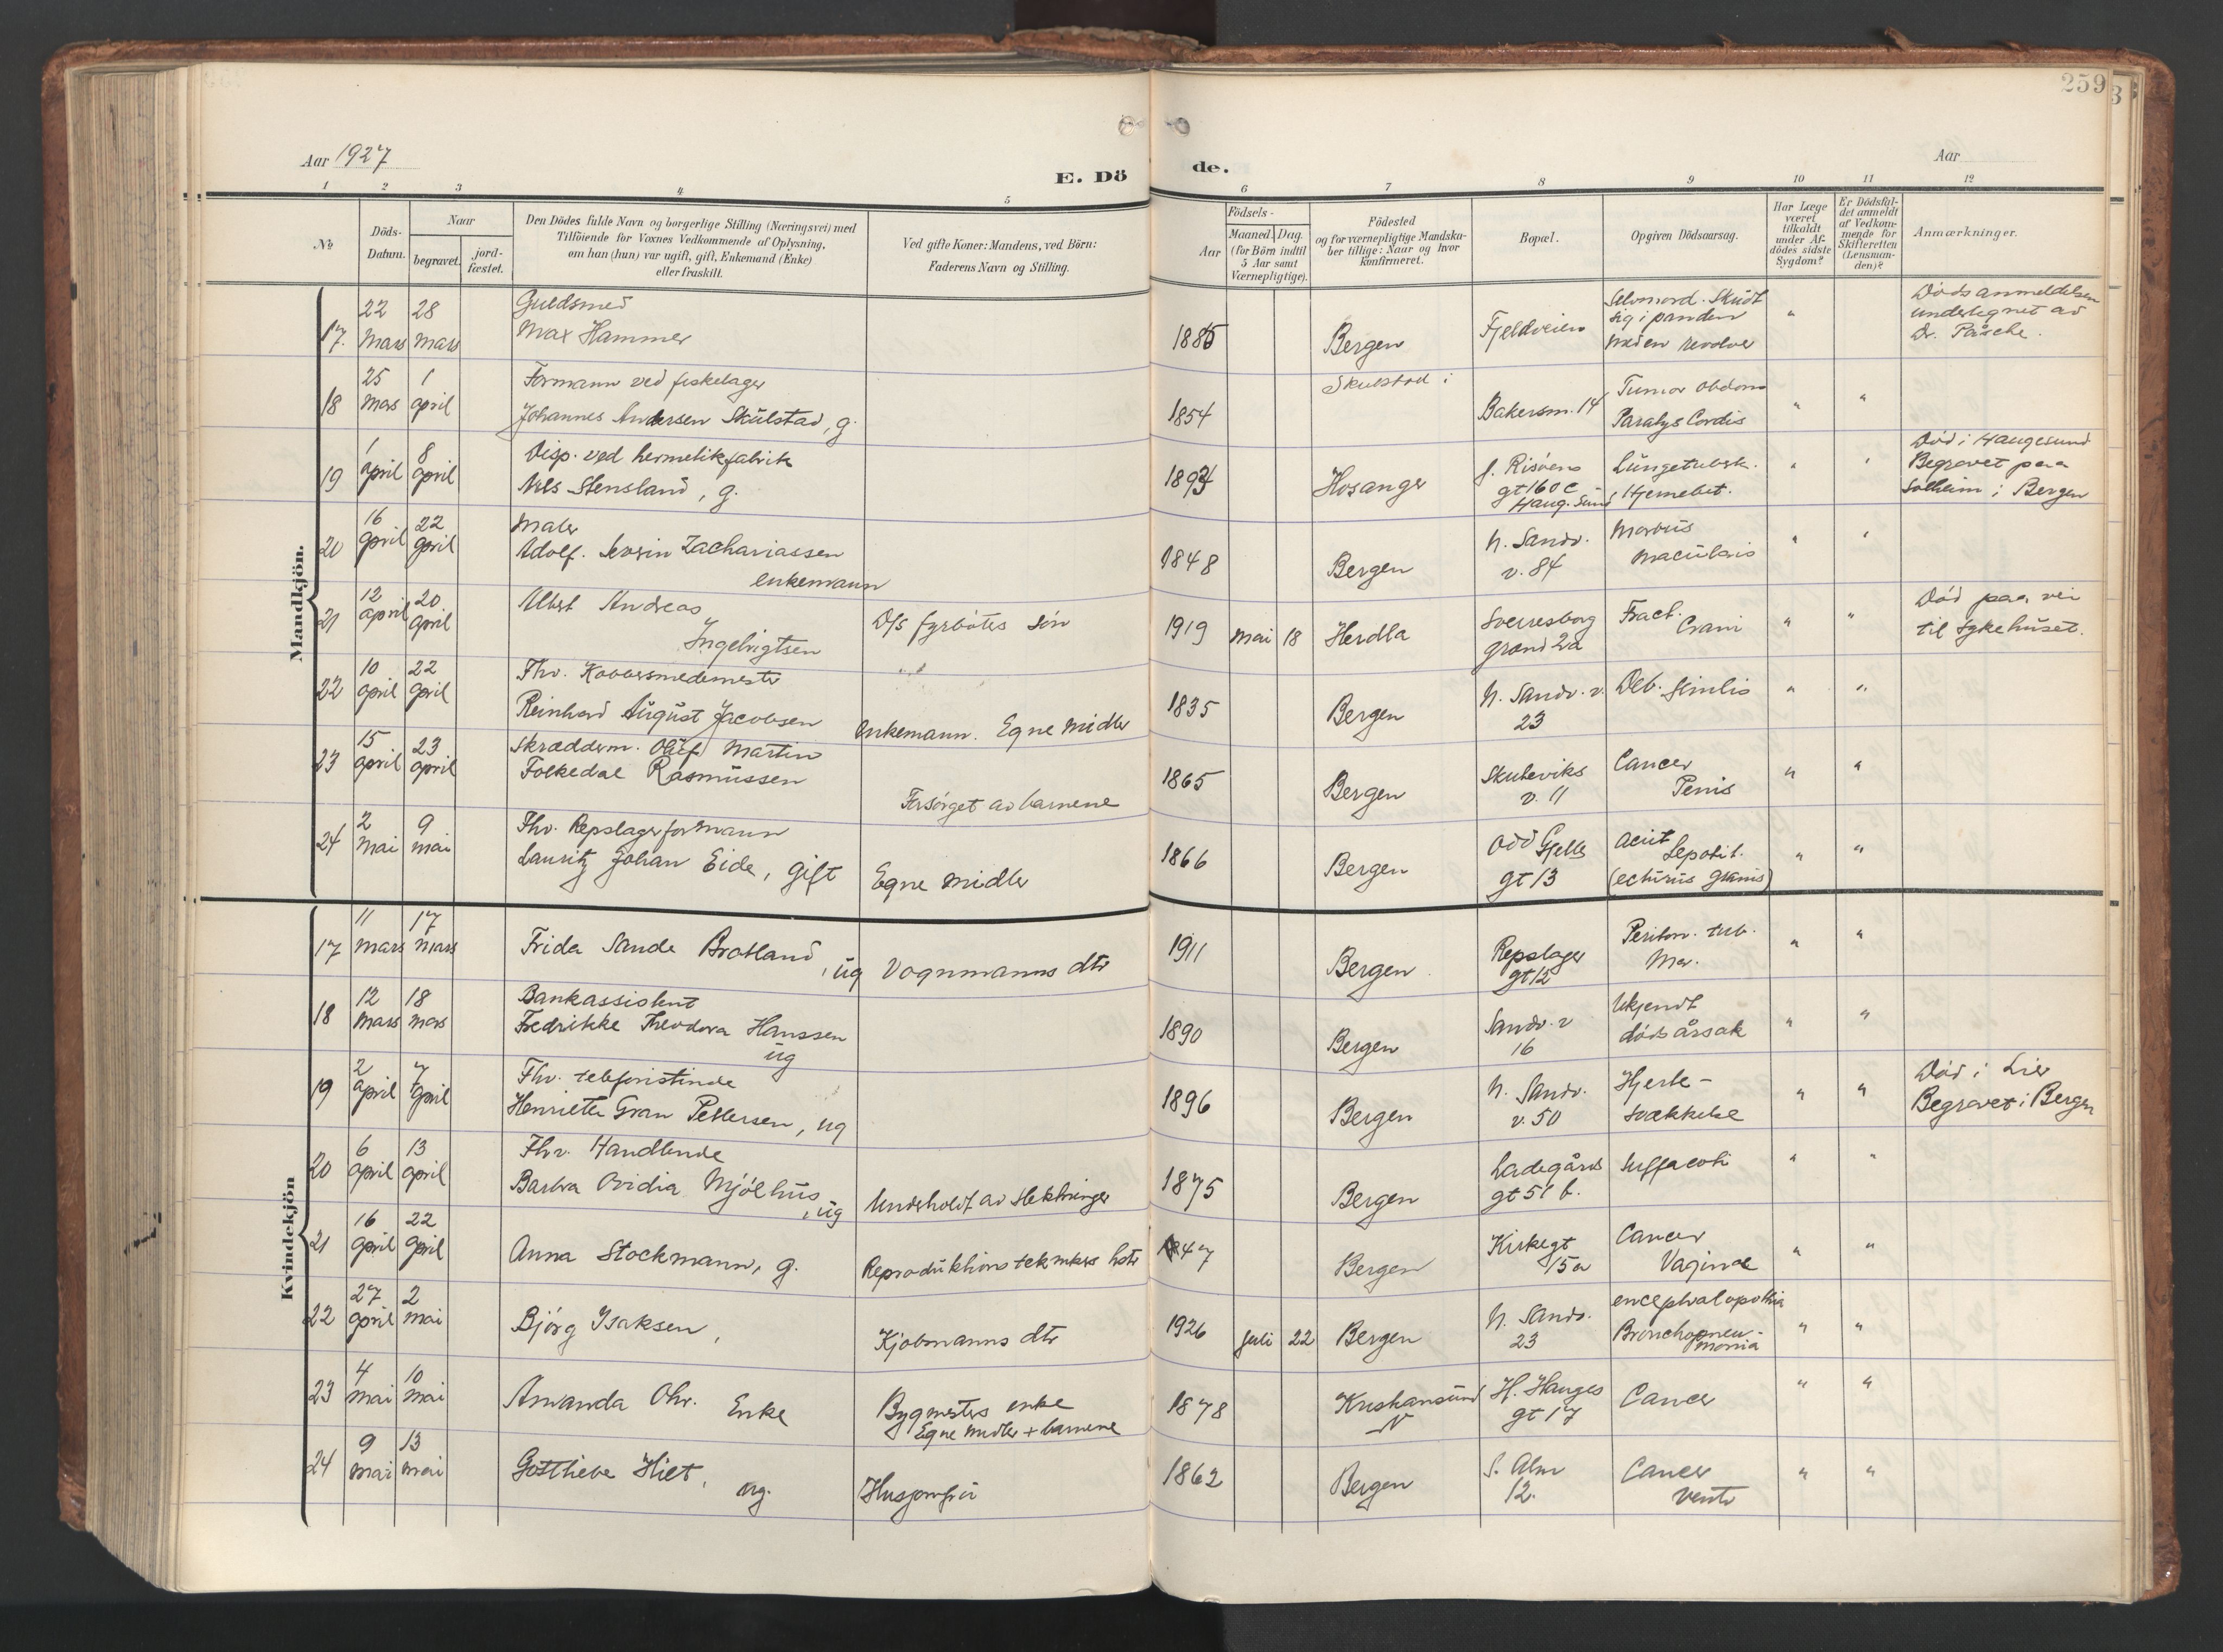 259
Aar 1927
E. Dö
de.
Aar
1 2 3 4 5 6 7 8 9 10 11 12
No
Döds-
Datum.
Naar
begravet.
jord-
fæstet.
Den Dödes fulde Navn og borgerlige Stilling (Næringsvei) med
Tilföiende for Voxnes Vedkommende af Oplysning,
om han (hun) var ugift, gift, Enkemand (Enke)
eller fraskilt.
Ved gifte Koner: Mandens, ved Börn:
Faderens Navn og Stilling.
Födsels-
Aar
Maaned.
Dag.
(for Börn indtil
5 Aar samt
Værnepligtige).
Födested
og for værnepligtige Mandska-
ber tillige: Naar og hvor
konfirmeret.
Bopæl.
Opgiven Dödsaarsag.
Har Læge
været
tilkaldt
under Af-
dödes sidste
Sygdom?
Er Dödsfal-
det anmeldt
af Vedkom-
mende for
Skifteretten
(Lensman-
den)?
Anmærkninger.
Mandkjön.
17. 22 Mars 28 Mars
Guldsmed
Max Hammer
1885 Bergen Fjeldveien
Selvmord. Skudt
sig i panden
med en revolver
"
Dødsanmeldelsen
undertegnet av
Dr. Pasche.
18 25 Mars 1 april
Formann ved fiskelager
Johannes Andersen Skulstad, g.
1854 Skulstad i
Bakersm. 14
Tumor Abdom
Paralys Cordis
" "
19 1 april 8 april
Disp. ved hermetikfabrik
Nils Stensland, g.
1894 Hosanger
f. Risøens
gt 160 C
Haug. Sund
Lungetuberk.
Hjernebet.
" "
Død i Haugesund
Begravet paa
Solheim i Bergen
20 16 april 22 april
Maler
Adolf. Severin Zachariassen
enkemann
1848 Bergen
N. Sandv.
v. 84
Morbus
Macularis
" "
21 12 april 20 april
Albert Andreas
Ingebrigtsen
D/s fyrbøters søn
1919 Mai 18 Herdla
Sverresborg
grand 2a
Fract.
Crani
" "
Død paa vei
til sykehuset.
22 10 april 22 april
Fhv. Kobbersmedemester
Reinhard August Jacobsen
Enkemann. Egne Midler
1835 Bergen
N. Sandv. v.
23
Deb. senilis
" "
23 15 april 23 april
Skræddern. Oluf Martin
Folkedal Rasmussen
Forsørget av barnene
1865 Bergen
Skuteviks
v. 11
Cancer
Penis
" "
24 2 Mai 9 mai
Fhv. Repslagerformann
Lauritz Johan Eide, gift
Egne Midler
1866 Bergen
Odd Gjells
gt 13
Acut
" "
Kvindekjön
17 11 Mars 17 Mars
Frida Sande Brotland, ug
Vognmanns dtr
1911 Bergen.
Repslager
gt 12
Periton. tub.
" "
18 12 Mars 18 Mars
Bankassistent
Fredrikke Theodora Hanssen
ug
1890 Bergen
Sandv. v
16
Ukjendt
dødsårsak
" "
19 2 april 7 april
Fhv. telefonistinde
Henriette Gran Pettersen, ug
1896 Bergen
N. Sandv.
v. 50
Hjerte-
svækkelse
" "
Død i Lier
Begravet i Bergen
20 6 april 13 april
Fhv. Handlende
Barbra Ovidia Mjølhus
, ug
Underholdt av slektninger
1875 Bergen
Ladegårds
gt 51 b.
Suffacoti
" "
21 16 april 22 april
Anna Stockmann, g.
Reproduktions teknikers hstr
1847 Bergen
Kirkegt
15a
Cancer
Vaginae
" "
22 27 april 2 mai
Bjørg Isaksen,
Kjøbmanns dtr
1926 Juli 22 Bergen
N. Sandv.
23
encephalopathia
Bronchopneu-
monia
" "
23 4 mai 10 mai
Amanda Ohr. Enke
Bygmesters enke
Egne midler + barnene
1878 Kristiansund
N
H. Hauges
gt 17
Cancer
" "
24 9 mai 13 mai
Gottliebe Hilt, ug.
Husjomfru
1862 Bergen
S. Alm
12.
Cancer
ventr
" "